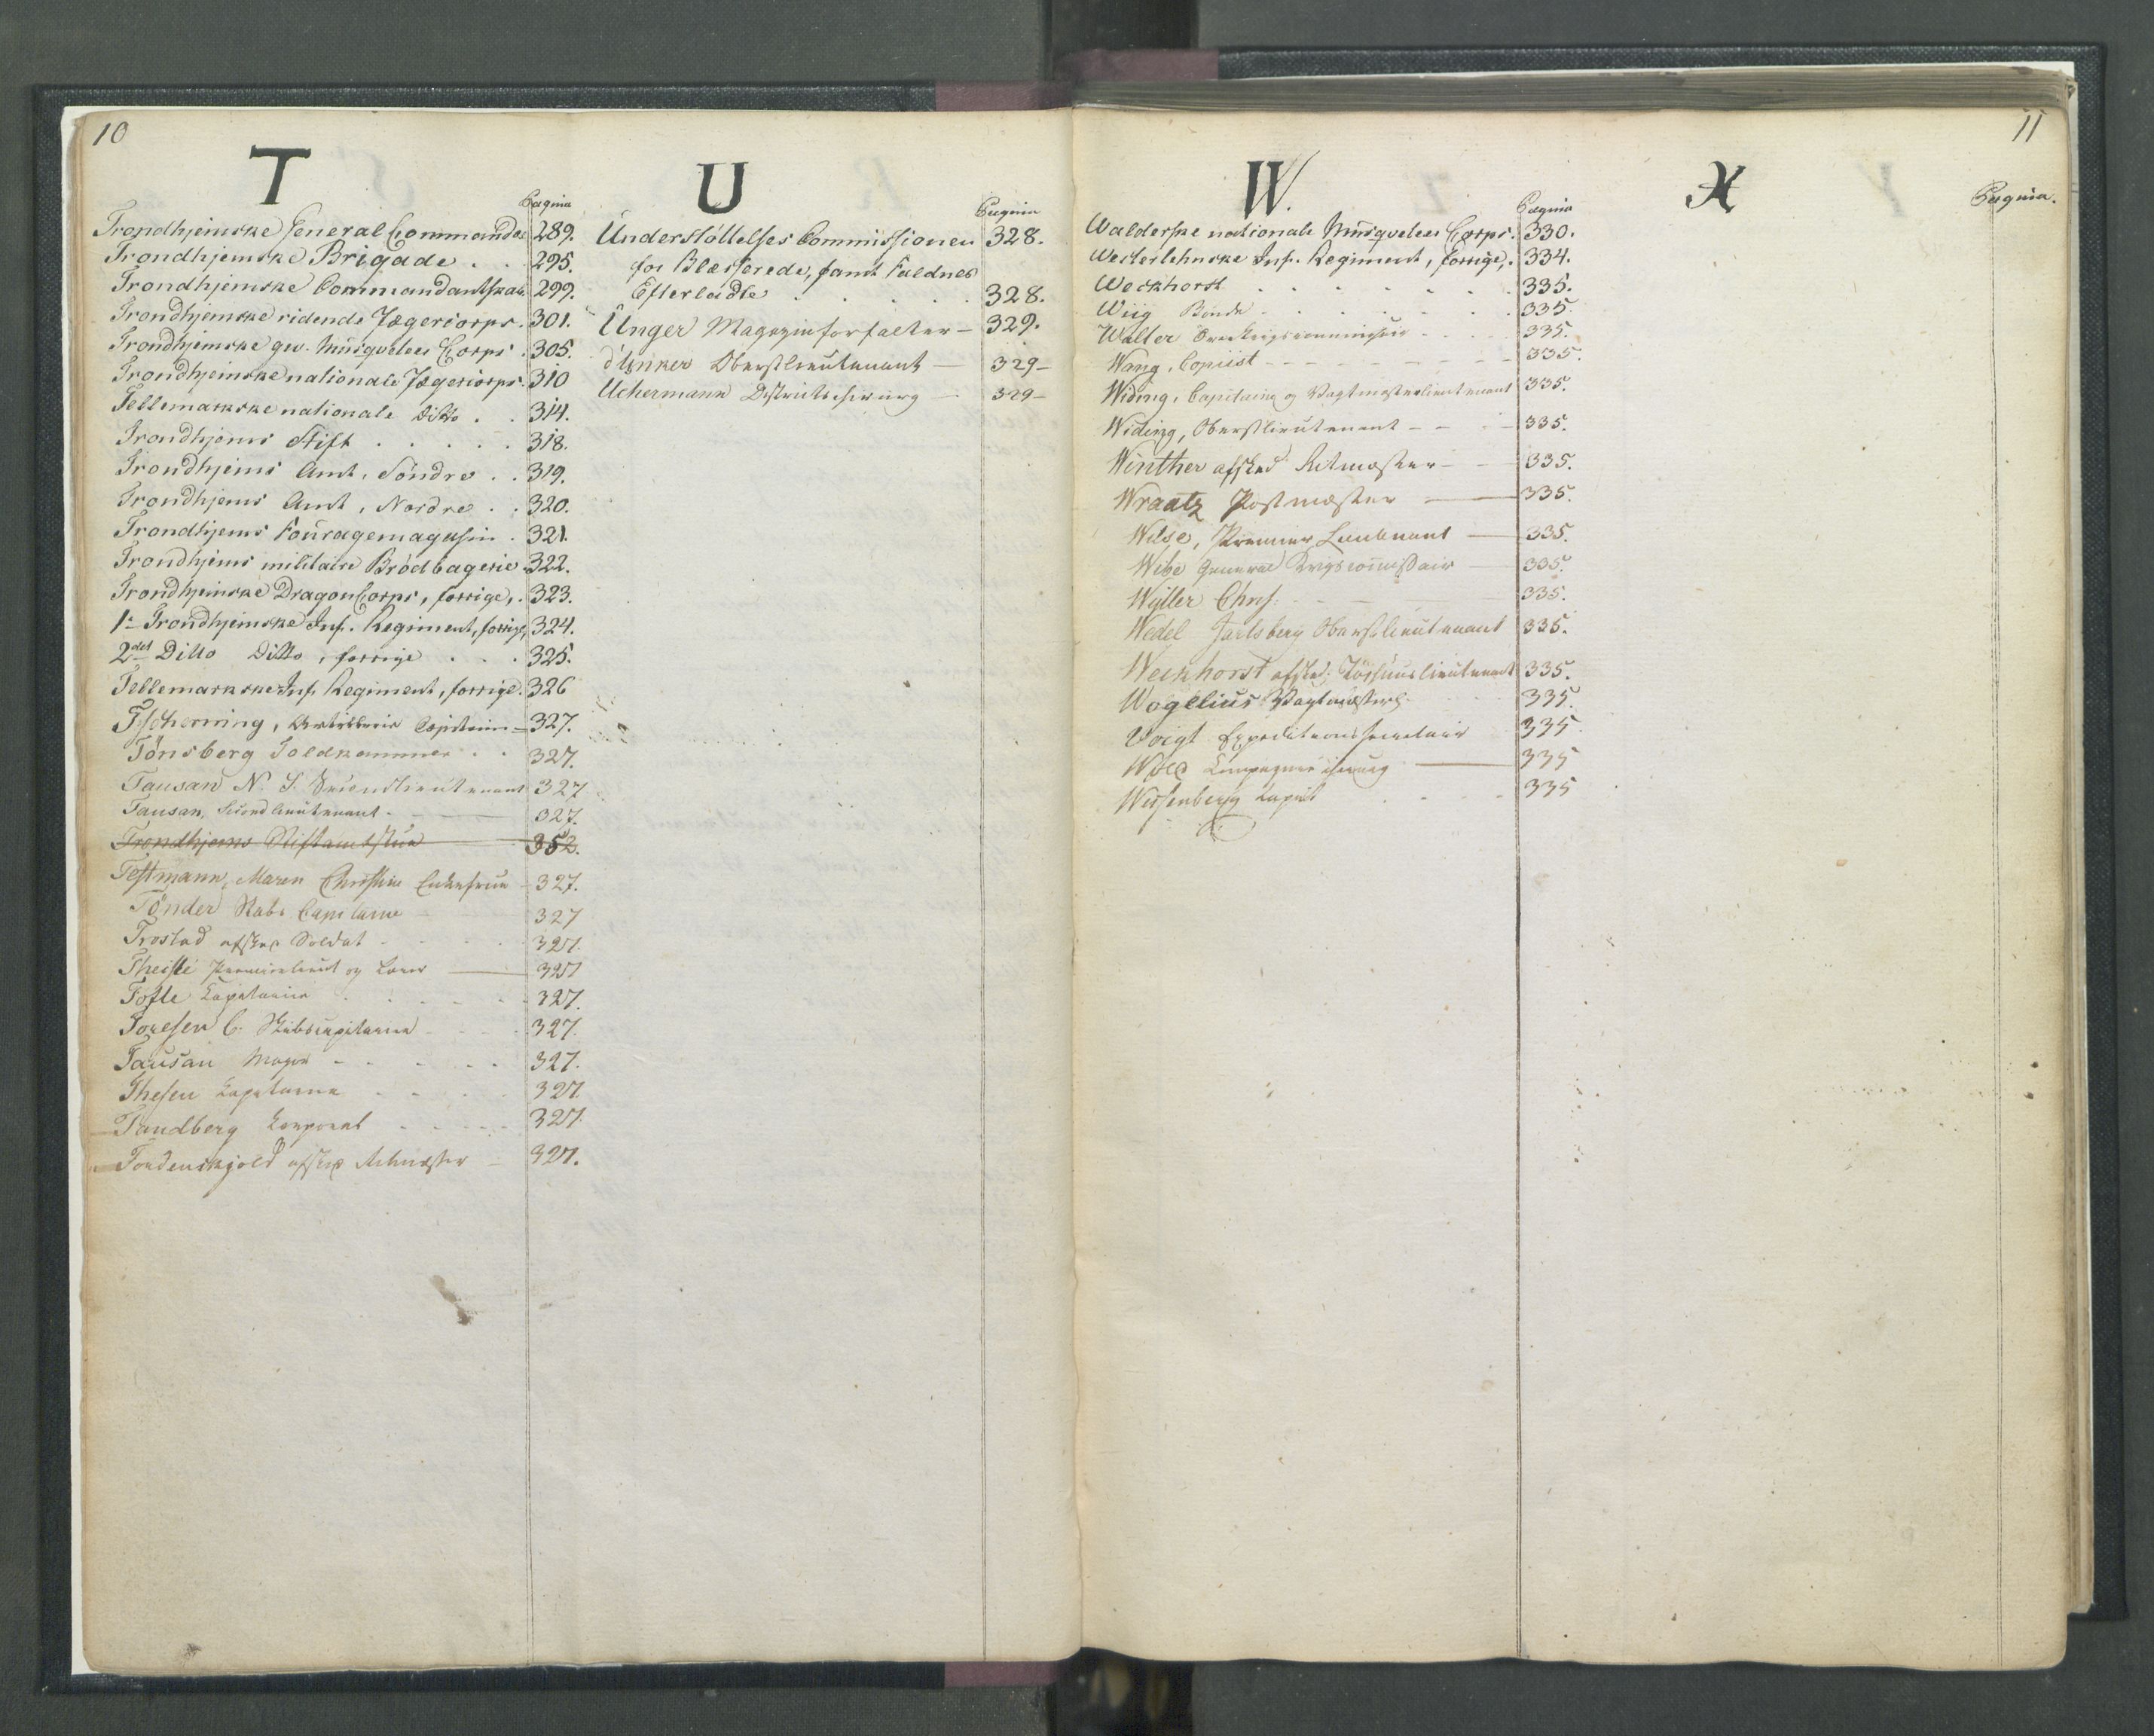 10
T
Pagina
Trondhjemske General Commando 289.
Trondhjemske Brigade . . 295.
Trondhjemske Commandantskab 299.
Trondhjemske ridende Jægercorps. 301.
Trondhjemske gev. Musqveteer Corps. 305.
Trondhjemske nationale Jægercorps. 310
Tellemarkske nationale Ditto . . 314.
Trondhjems Stift . . . . . 318.
Trondhjems Amt, Söndre . . 319.
Trondhjems Amt, Nordre . . 320.
Trondhjems Fouragemagasin . 321.
Trondhjems militaire Brödbagerie 322.
Trondhjemske Dragon Corps, forrige, . 323.
1e Trondhjemske Inf. Regiment, forrige, 324.
2det Ditto Ditto, forrige . . . 325.
Tellemarkske Inf. Regiment, forrige. 326
Tscherning, Artillerie Capitain — 327.
Tönsberg Toldkammer . . 327.
Tausan N. S. Secondlieutenant 327
Tausan, Secondlieutenant - — 327.
Trondhjems Stiftamtstue 352.
Testmann, Maren Christine Enkefrue — 327.
Tönder Stabs Capitaine 327
Trostad afsked Soldat - - - 327.
Theiste Premierlieut og — 327
Tofte Capitaine . - - - - 327.
Toresen C. Stabscapitaine - - - 327.
Tausan Major - - - - - 327.
Thesen Capitaine - - - - 327.
Tandberg Korporal - - - - 327.
Tordenskjold afsked Ritmester — 327.
U
Pagina
Understöttelses Commissionen 328.
for Blesserede, samt Faldnes
Efterladte . . . . . 328.
Unger Magazinforvalter — 329.
d'Unker Oberstlieutenant — 329—
Uchermann Districtschirurg — 329—
11
W.
Pagina
Walderske nationale Musqveteer Corps. 330.
Westerlehnske Inf. Regiment, forrige, . 334.
Weckhorst . . . . . . . 335.
Wiig Bonde . . . . . . . 335.
Waller Overkrigscommissair - . . . 335.
Wang, Copiist - - - - - - - 335.
Widing, Capitaine og Vagtmesterlieutenant 335.
Widing, Oberstlieutenant - - - - 335.
Winther afsked Ritmester — — 335.
Wraatz Postmester — 335.
Wilse, Premier Lieutnant — 335.
Wibe General Krigscommissair — 335.
Wüller Chrs. - — 335.
Wedel Jarlsberg Oberstlieutenant 335.
Weckhorst afsked. lieutenant 335.
Wogelius Vagtmesterl. 335.
Voigt Expeditionssecretair 335.
Compagniechirurg — 335
Weisenberg . . . . 335
X
Pagina.